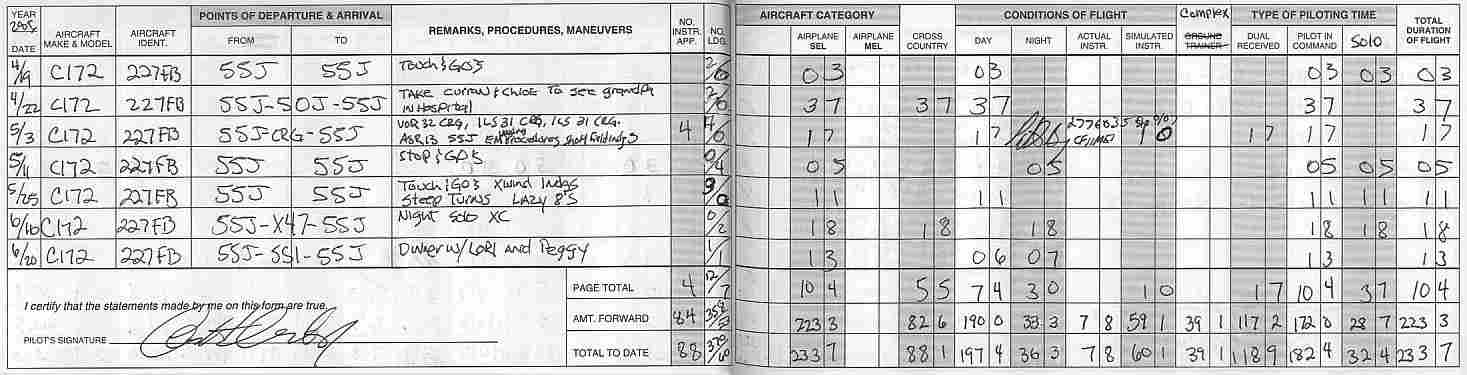 YEAR 2005 POINTS OF DEPARTURE & ARRIVAL NO. INSTR. APP. NO. LDG. AIRCRAFT CATEGORY CONDITIONS OF FLIGHT Complex TYPE OF PILOTING TIME TOTAL DURATION OF FLIGHT
DATE AIRCRAFT MAKE & MODEL AIRCRAFT IDENT. FROM TO REMARKS, PROCEDURES, MANEUVERS AIRPLANE SEL AIRPLANE MEL CROSS COUNTRY DAY NIGHT ACTUAL INSTR. SIMULATED INSTR. GROUND TRAINER DUAL RECEIVED PILOT IN COMMAND SOLO
4/19 C172 227FB 55J 55J Touch & GO'S 2/0 0 3 0 3 0 3 0 3 0 3
4/22 C172 227FB 55J-50J-55J TAKE CURRAN & CHLOE TO see grandpa 2/0 3 7 3 7 3 7 3 7 3 7
IN Hospital
5/3 C172 227FB 55J-CRG-55J VOR 32 CRG, ILS 31 CRG, ILS 31 CRG. 4 4/0 1 7 1 7 2776035 CFIIME 1 0 1 7 1 7 1 7
ASR 13 55J Procedures
5/11 C172 227FB 55J 55J Stop & GO'S 0/4 0 5 0 5 0 5 0 5 0 5
5/25 C172 227FB 55J 55J Touch & GO'S Xwind lndgs 3/0 1 1 1 1 1 1 1 1 1 1
Steep Turns LAZY 8'S
6/16 C172 227FB 55J-X47-55J Night Solo XC 0/2 1 8 1 8 1 8 1 8 1 8 1 8
6/20 C172 227FB 55J-SSI-55J Dinner w/ LORI and Peggy 1/1 1 3 0 6 0 7 1 3 1 3
PAGE TOTAL 4 12/7 10 4 5 5 7 4 3 0 1 0 1 7 10 4 3 7 10 4
I certify that the statements made by me on this form are true.
AMT. FORWARD 84 223 3 82 6 190 0 33 3 7 8 59 1 39 1 117 2 172 0 28 7 223 3
PILOT'S SIGNATURE
TOTAL TO DATE 88 233 7 88 1 197 4 36 3 7 8 60 1 39 1 118 9 182 4 32 4 233 7